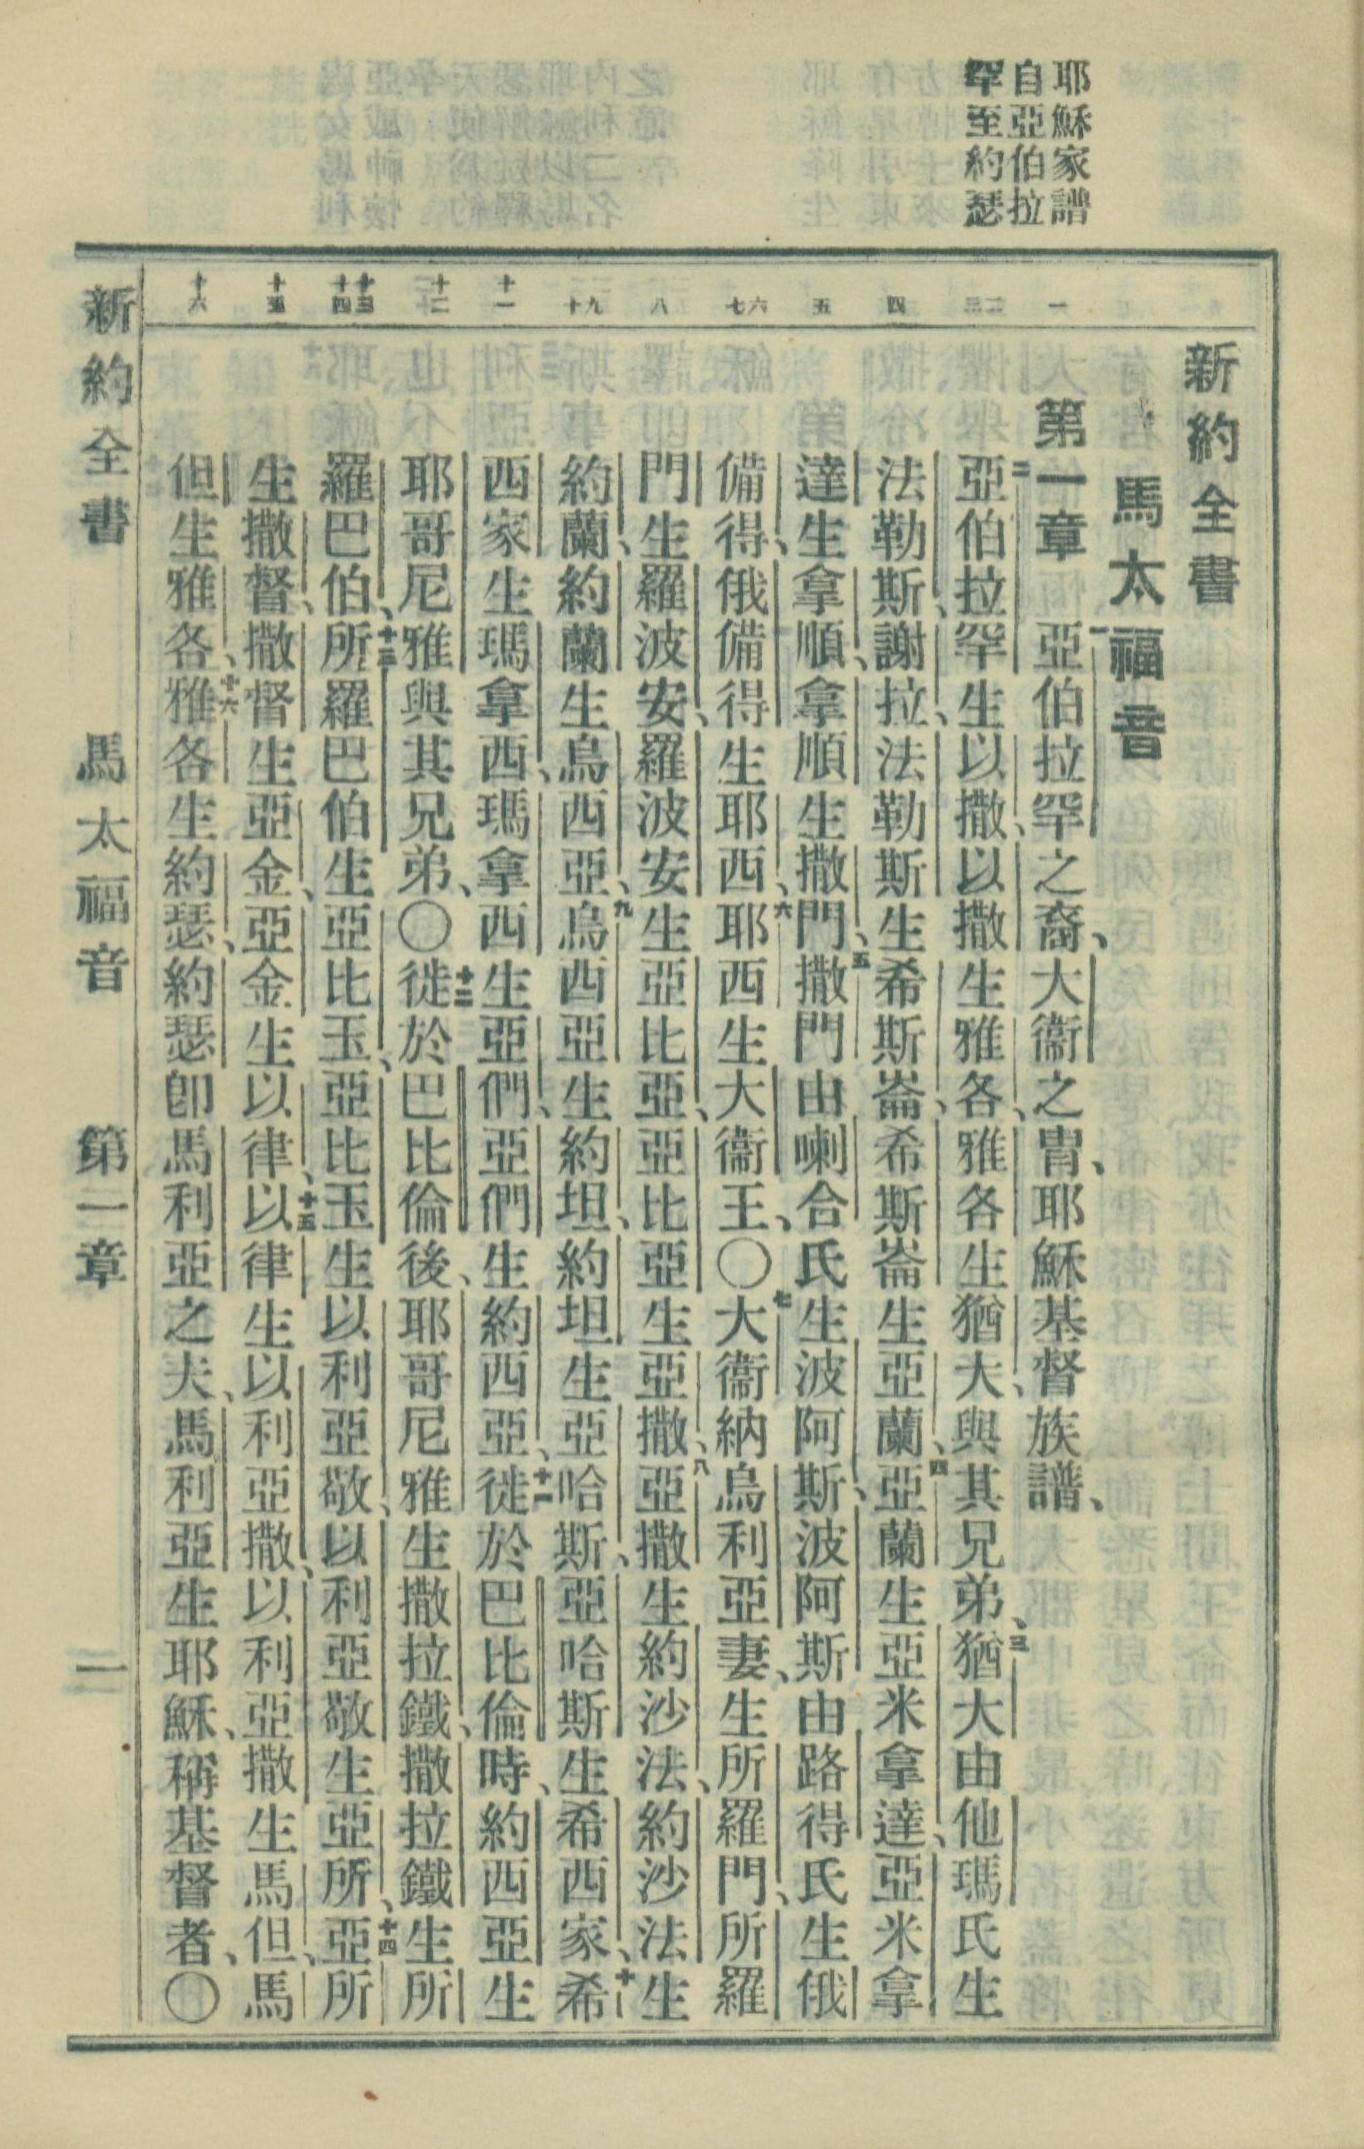 耶穌家譜
自亞伯拉
罕至約瑟
一
二三
四
五
六七
八
九十
十一
十二
十三十四
十五
十六
新約全書
馬太福音
第一章 一亞伯拉罕之裔、大衞之胄、耶穌基督族譜、
二亞伯拉罕生以撒、以撒生雅各、雅各生猶大、與其兄弟、三猶大由他瑪氏生
法勒斯、謝拉、法勒斯生希斯崙、希斯崙生亞蘭、四亞蘭生亞米拿達、亞米拿
達生拿順、拿順生撒門、五撒門由喇合氏生波阿斯、波阿斯由路得氏生俄
備得、俄備得生耶西、六耶西生大衞王、〇七大衞納烏利亞妻、生所羅門、所羅
門生羅波安、羅波安生亞比亞、亞比亞生亞撒、八亞撒生約沙法、約沙法生
約蘭、約蘭生烏西亞、九烏西亞生約坦、約坦生亞哈斯、亞哈斯生希西家、十希
西家生瑪拿西、瑪拿西生亞們、亞們生約西亞、十一徙於巴比倫時、約西亞生
耶哥尼雅與其兄弟、〇十二徙於巴比倫後、耶哥尼雅生撒拉鐵、撒拉鐵生所
羅巴伯、十三所羅巴伯生亞比玉、亞比玉生以利亞敬、以利亞敬生亞所、十四亞所
生撒督、撒督生亞金、亞金生以律、十五以律生以利亞撒、以利亞撒生馬但、馬
但生雅各、十六雅各生約瑟、約瑟卽馬利亞之夫、馬利亞生耶穌、稱基督者、〇
新約全書 馬太福音 第一章 一